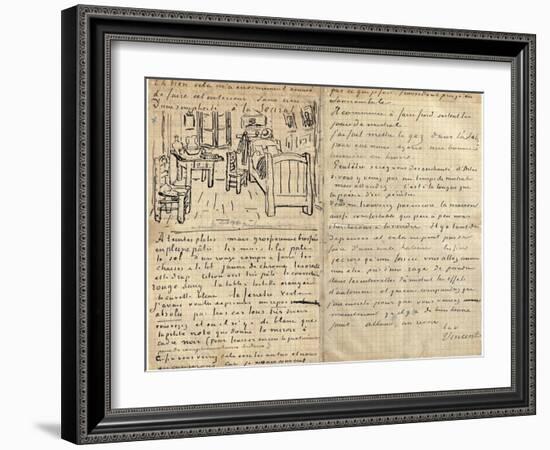 Eh bien cela m'a enormement amusé
de faire cet interieur sans rien
d'une simplicité à la Seurat
A teintes plates mais grossierement brossées
en pleine pâte les murs lilas pâle
le sol d'un rouge rompu & fané les
chaises & le lit jaune de chrome les oreillers
et le drap citron vert très pâle la couverture
rouge sang la table à toilette orangée
la cuvette bleue la fenêtre verte
J'avais voulu exprimer un repos
absolu par tous ces tons très divers
vous voyez et où il n'y a de blanc que
la petite note que donne le miroir à
cadre noir (pour fourrer encore la quatrième
paire de complémentaires dedans)
Enfin vous verrez cela avec les autres et nous
en causerons car je ne sais souvent
pas ce que je fais travaillant presqu'en
somnambule.
Il commence à faire froid surtout les
jours de mistral.
J'ai fait mettre le gaz dans l'atelier
pour que nous ayons une bonne
lumière en hiver.
Peutêtre serez vous desenchanté d'Arles
si vous y venez par un temps de mistral
mais attendez C'est à la longue que
la poésie d'ici pénètre.
Vous ne trouverez pas encore la maison
aussi confortable que peu à peu nous
chercherons à la rendre. Il y a tant de
dépenses et cela ne peut pas se
faire d'une seule haleine. Enfin
je crois qu'une fois ici vous allez comme
moi être pris d'une rage de peindre
dans les intervalles du mistral les effets
d'automne et que vous comprendrez que
j'ai insisté pour que vous veniez
maintenant qu'il y a de bien beaux
jours allons, au revoir
t. à v.
Vincent